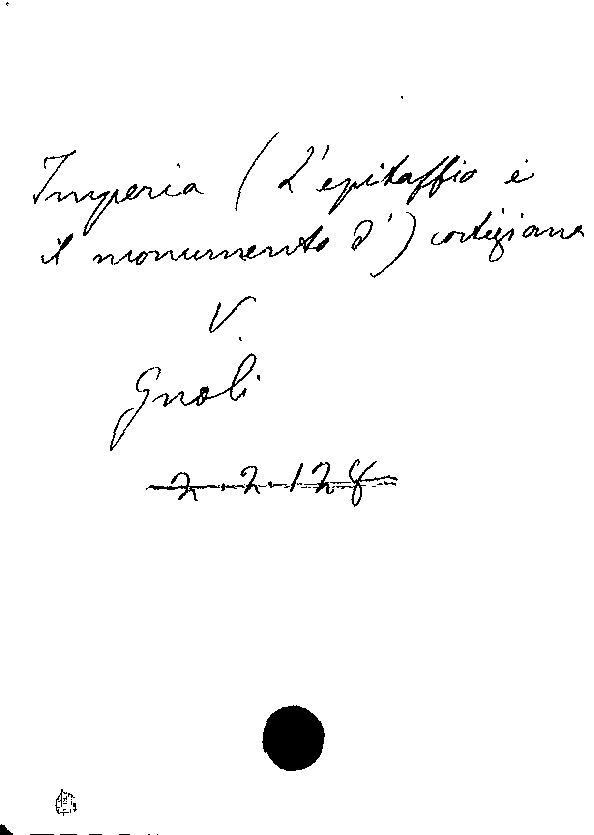 Imperia (L'epitaffio e
il monumento d') cortigiana
V.
Gnoli
2.2.128